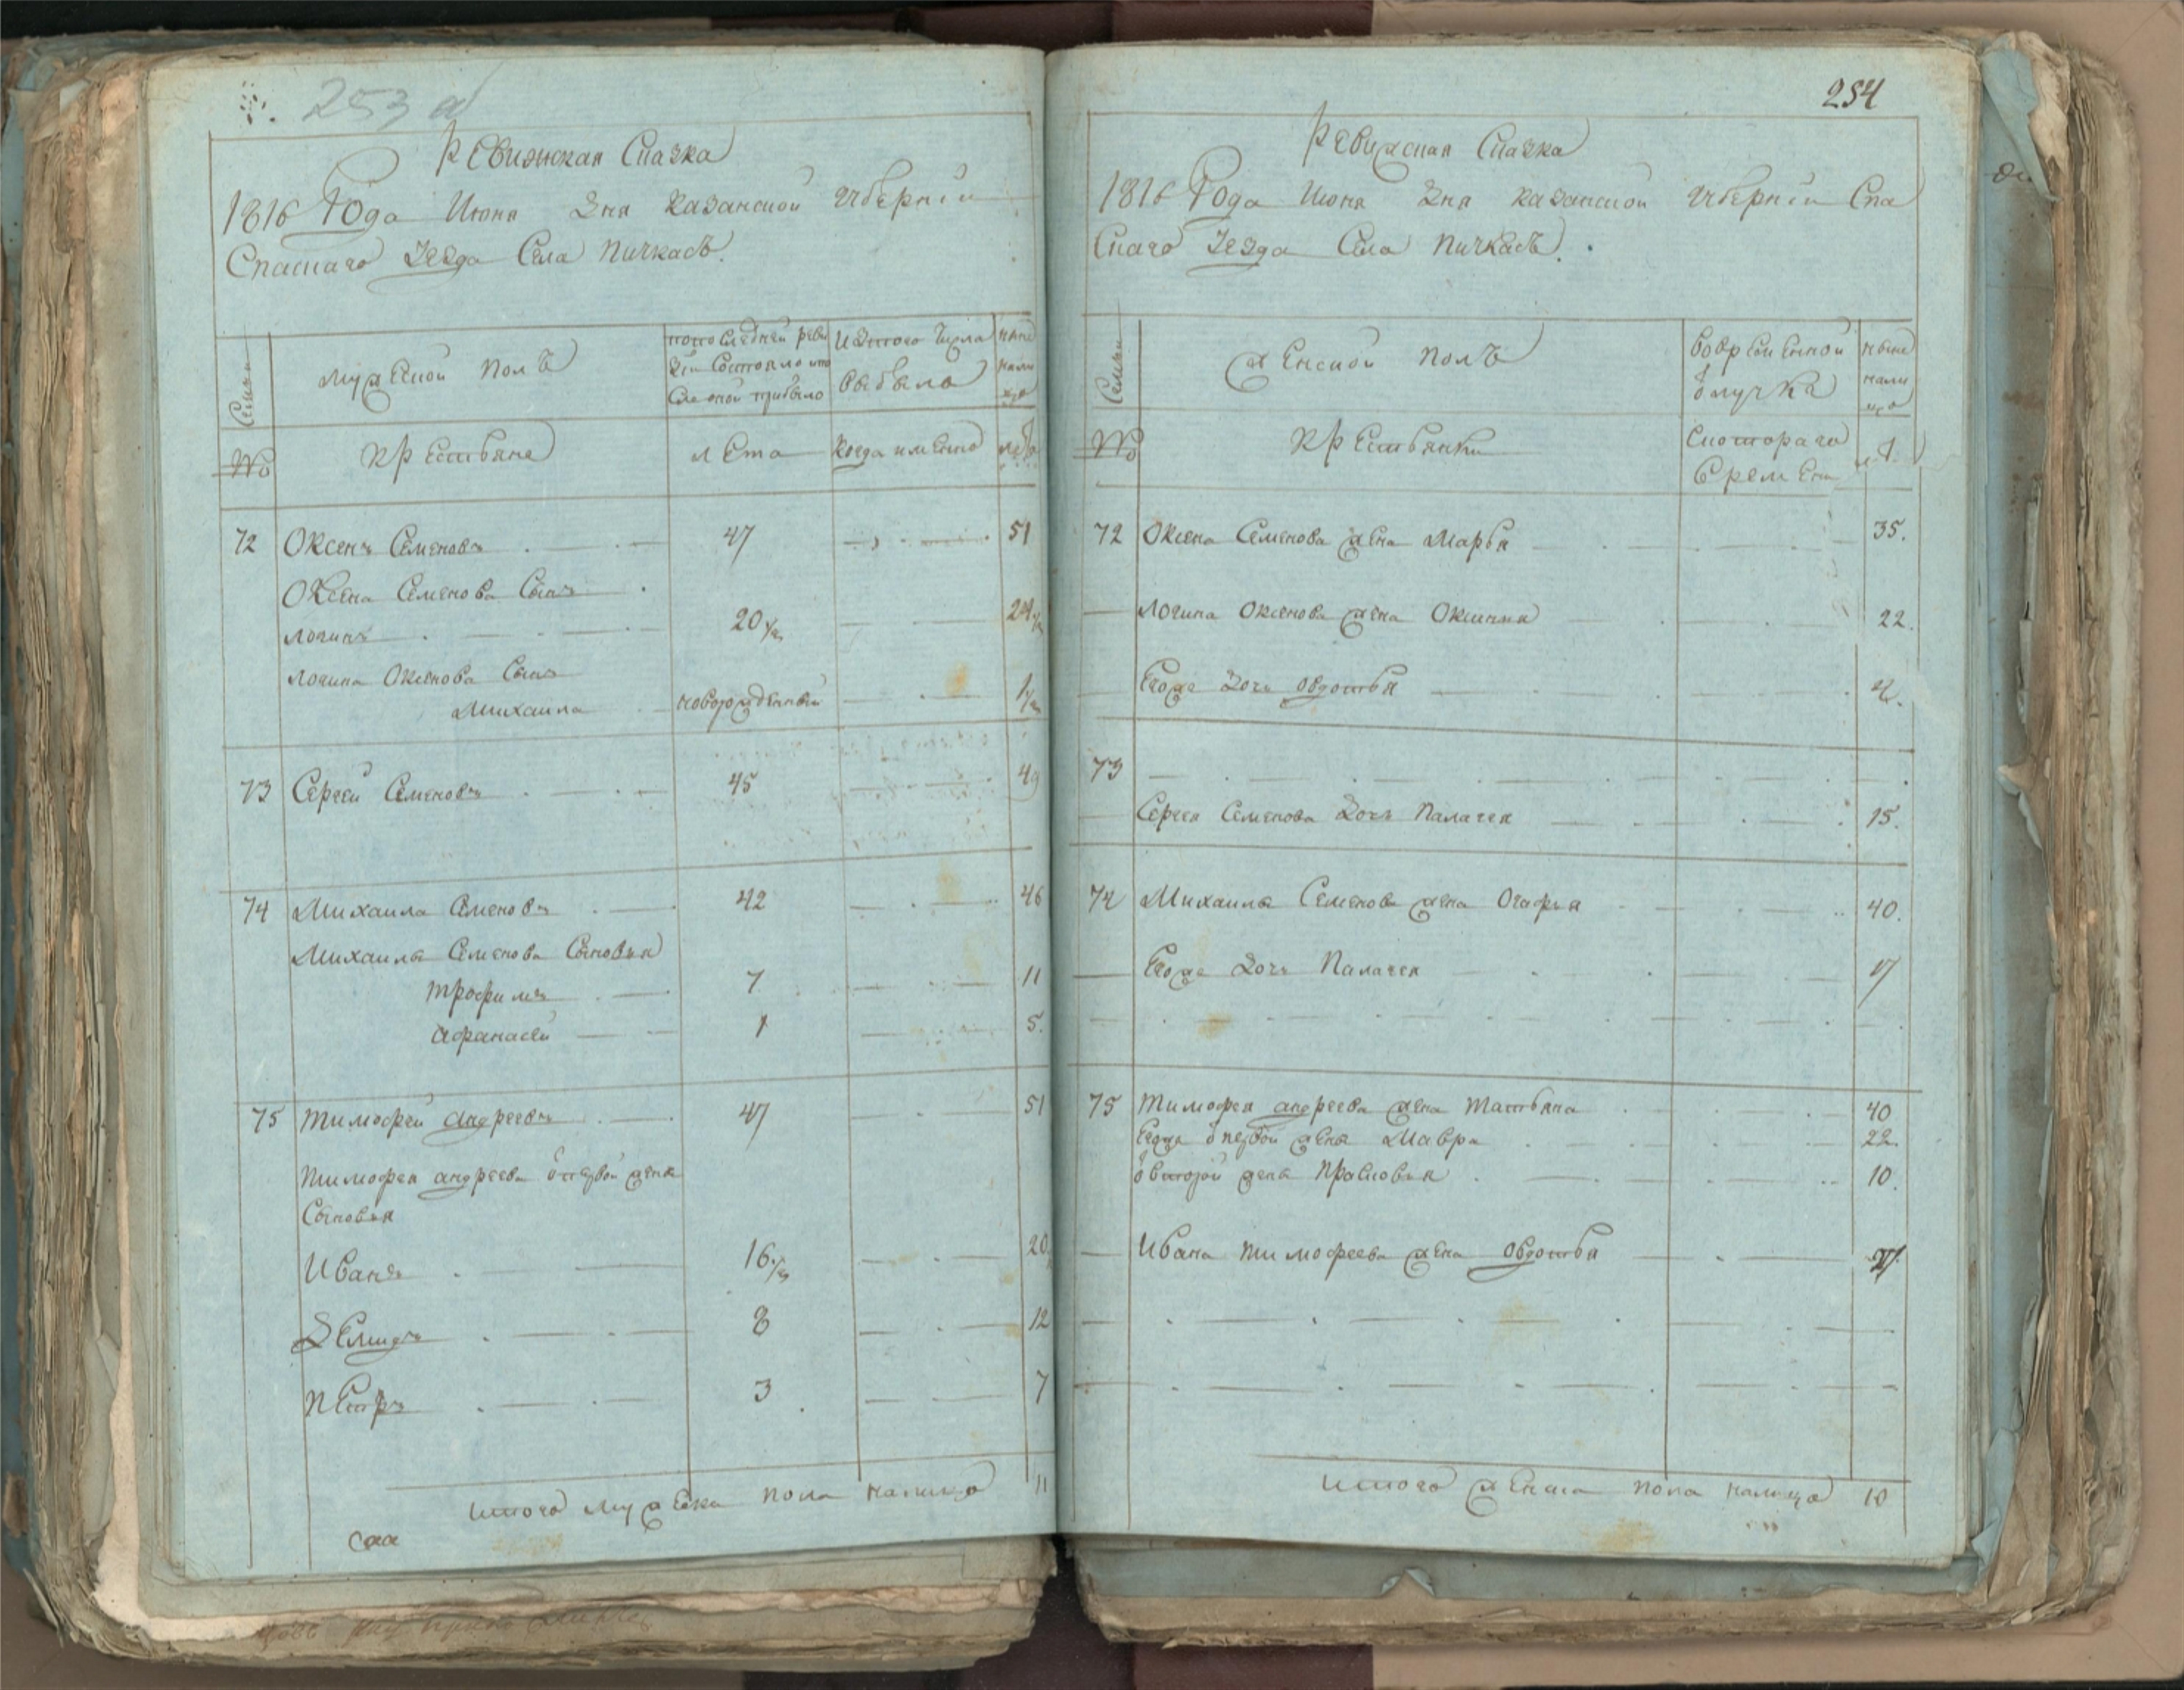 253 а
Ревижская Сказка
1816 Года Июня дня казанской губернии
Спаскаго уезда Села Пичкасъ.
Семьи
мужеской полъ
попоследней реви
зии состояло ито
сле оной прибыло
Изтого числа
выбыло
ныне
нали
цо
№
крестьяне
лета
когда имянно
лета
72 Оксенъ Семеновъ 47 51
Оксена Семенова Сынъ
логинъ 20 1/2 24 1/2
логина Оксенова Сынъ
Михаила новорожденный 1/2
73 Сергей Семеновъ 45 49
74 Михаила Семеновъ 42 46
Михаилы Семенова Сыновья
трофимъ 7 11
афанасей 1 5.
75 тимофей андреевъ 47 51
тимофея андреева отпервой жены
Сыновья
Иванъ 16 1/2 20
Демидъ 8 12
Петръ 3 7
итого мужеска пола налицо 11
254
Ревижская Сказка
1816 Года Июня дня казанской губернии Спа
Скаго уезда Села Пичкасъ.
Семьи
женской полъ
вовременной
отлучке
ныне
нали
цо
№
крестьянки
скотораго
времени
72 Оксена Семенова жена Марья 35.
логина Оксенова жена Оксинья 22.
Егоже дочь овдотья 2.
73
Сергея Семенова дочь Палагея 15.
74 Михаилы Семенова жена Огафья 40.
Егоже дочь Палагея 17
75 тимофея андреева жена татьяна 40
Егоже отпервой жены Мавра 22.
отвторой жены Прасковья 10.
Ивана тимофеева жена овдотья 21
итого женска пола налицо 10